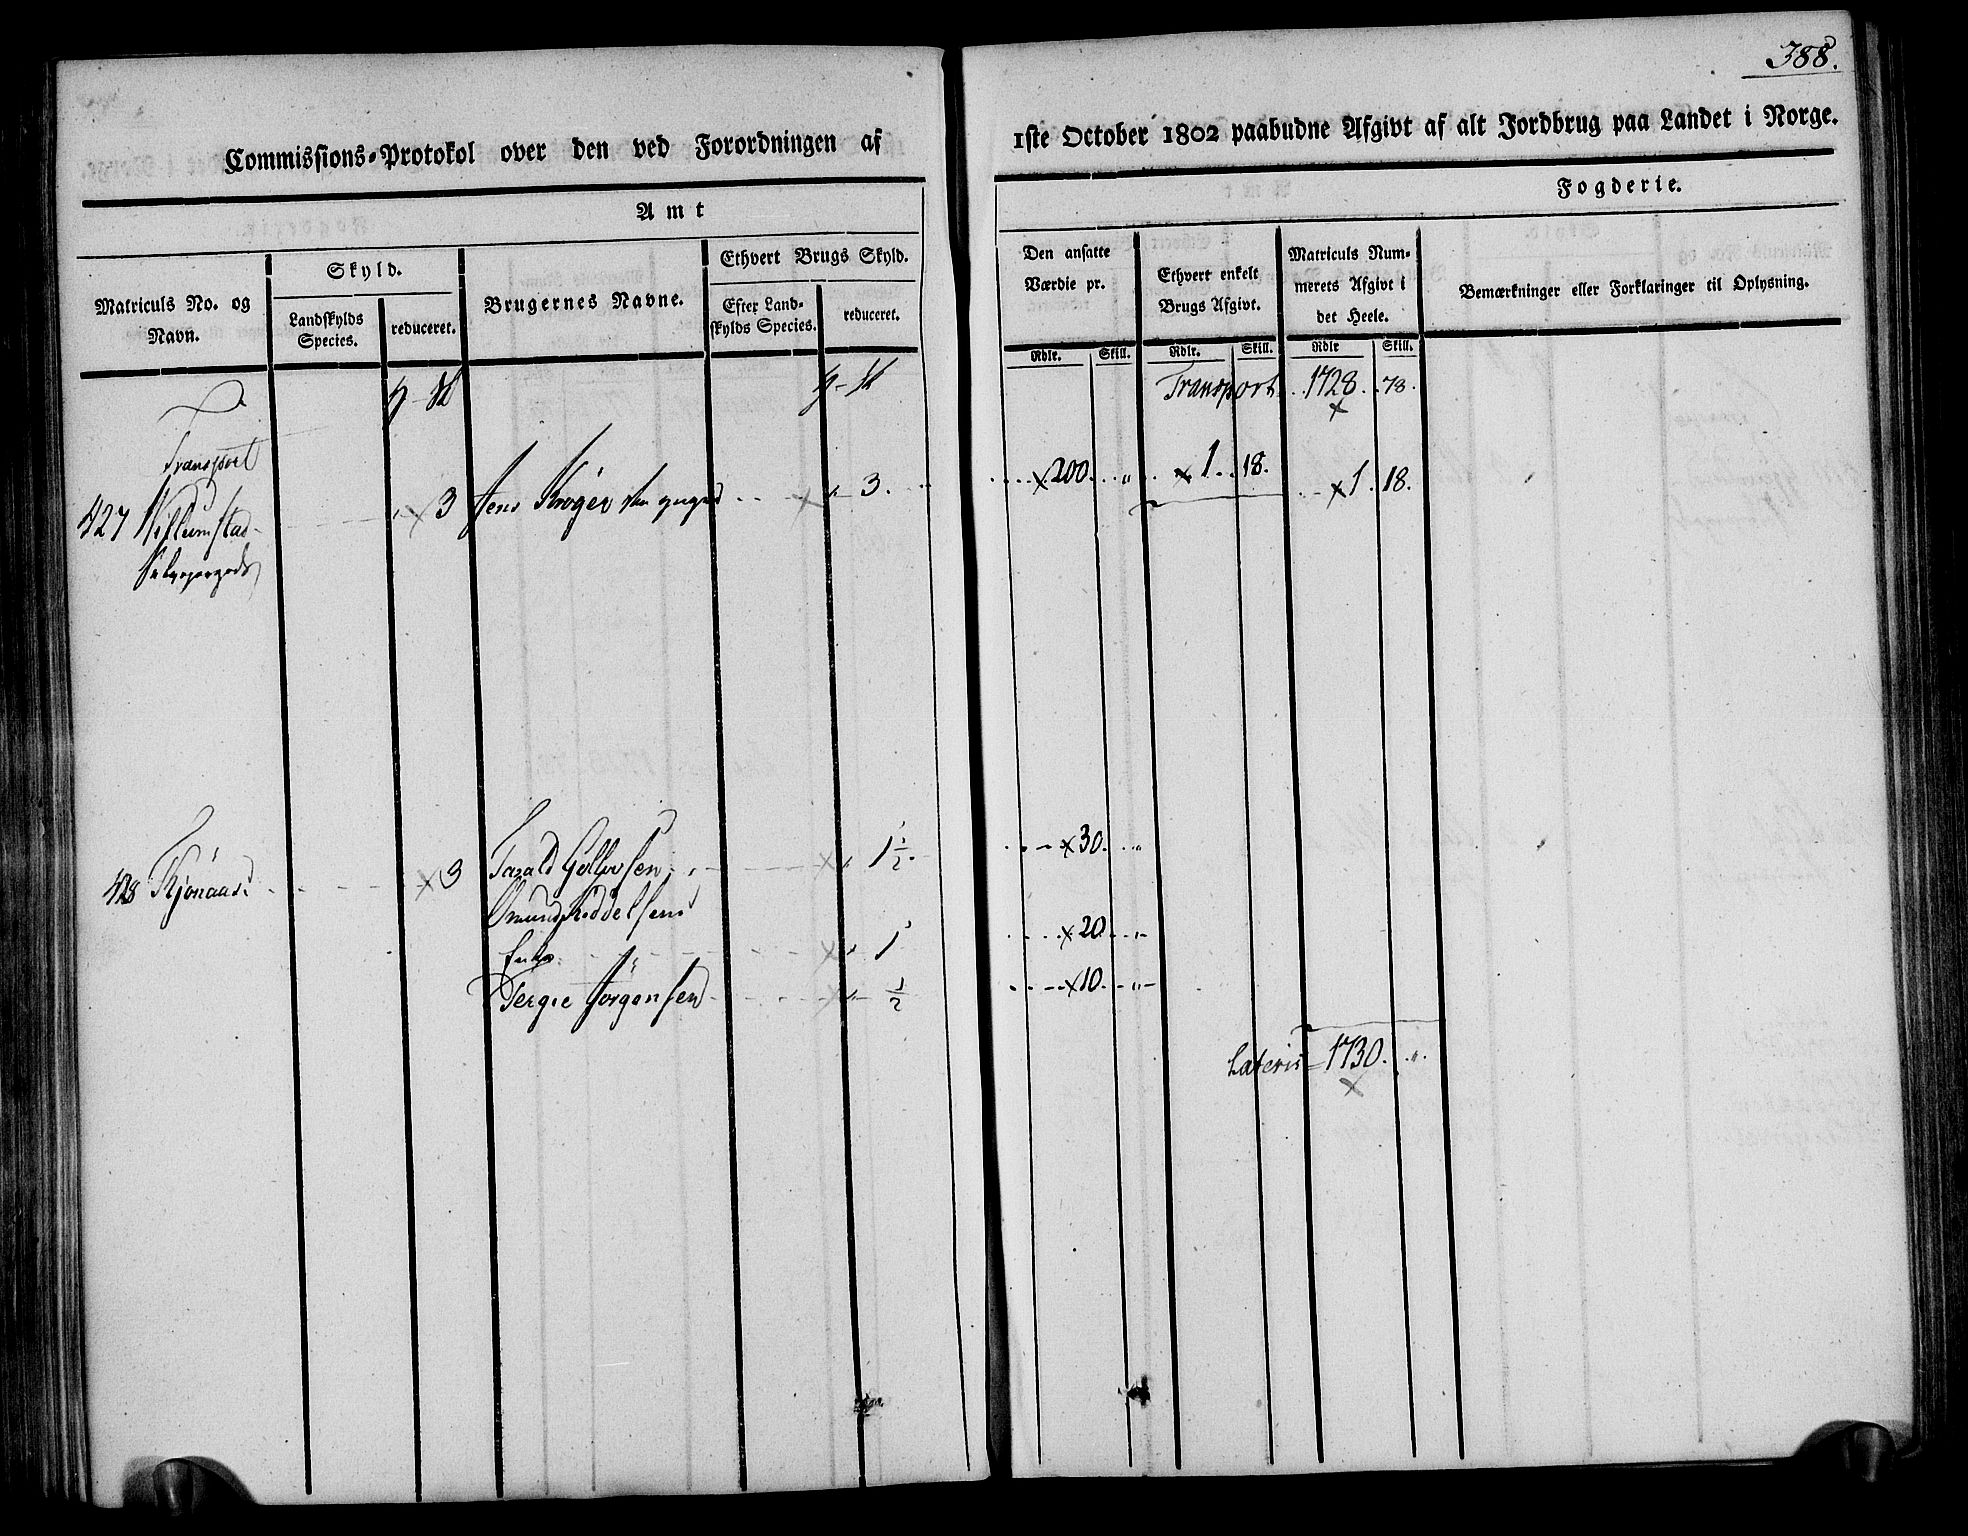 388.
Commissions-Protokol over den ved Forordningen af
1ste October 1802 paabudne Afgivt af alt Jordbrug paa Landet i Norge.
Amt
Fogderie.
Matriculs No. og
Navn.
Skyld.
Landskylds
Species.
reduceret.
Brugernes Navne.
Ethvert Brugs Skyld.
Efter Land-
skylds Species.
reduceret.
Den ansatte
Værdie pr.
Rdlr. Skill.
Ethvert enkelt
Brugs Afgivt.
Rdlr. Skill.
Matriculs Num-
merets Afgivt i
det Heele.
Rdlr Skill.
Bemærkninger eller Forklaringer til Oplysning.
Transport 1728. 78.
Transport
427 3 Jens Krøger 3. 200. " 1. 18. 1. 18.
428 Kjønaas 3 Tarald 1 1/2 30. "
Omund
Enke 1 20. "
Tergie Jörgensen 1/2 10. "
Lateris 1730. "